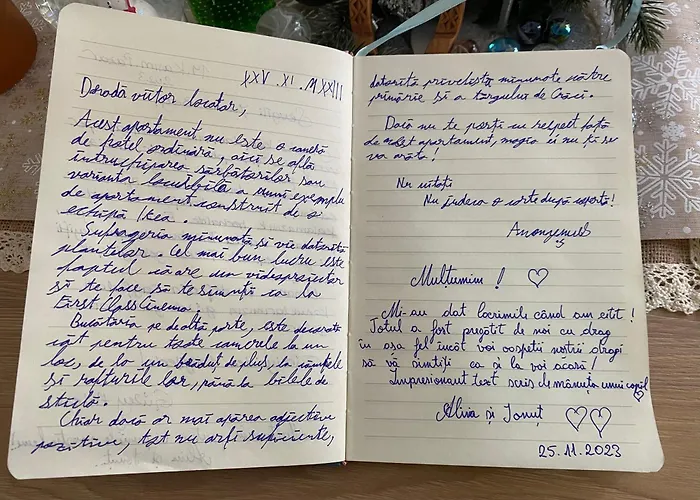 XXV . XI . MXXIII
Dragă viitor locatar,
Acest apartament nu este o cameră
de hotel ordinară, aici se află
întruchiparea sărbătorilor sau
varianta locuibilă a unui exemplu
de apartament construit de o
echipă Ikea.
Sufrageria minunată și vie datorită
plantelor. Cel mai bun lucru este
faptul că are un videoproiector
să te facă să te simți ca la
First Class Cinema.
Bucătăria pe de altă parte, este decorată
cât pentru toate camerele la un
loc, de la un de pluș, la
și rafturile lor, până la bilele de
sticlă.
Chiar dacă ar mai apărea adjective
pozitive, tot nu ar fi suficiente,
datorită priveliști minunate către
primărie și a târgului de Crăci.
Dacă nu te porți cu respect față
de acest apartament, magia ei nu ți se
va arăta!
Nu uitați
Nu judeca o carte după copertă!
Anonymous
Mulțumim! ♡
Mi-au dat lacrimile când am citit!
Totul a fost pregătit de noi cu drag
în așa fel încât voi oaspeții noștri dragi
să vă simțiți ca și la voi acasă!
Impresionant text scris de mânuța unui copil ♡
Alina și Ionuț ♡♡
25.11.2023